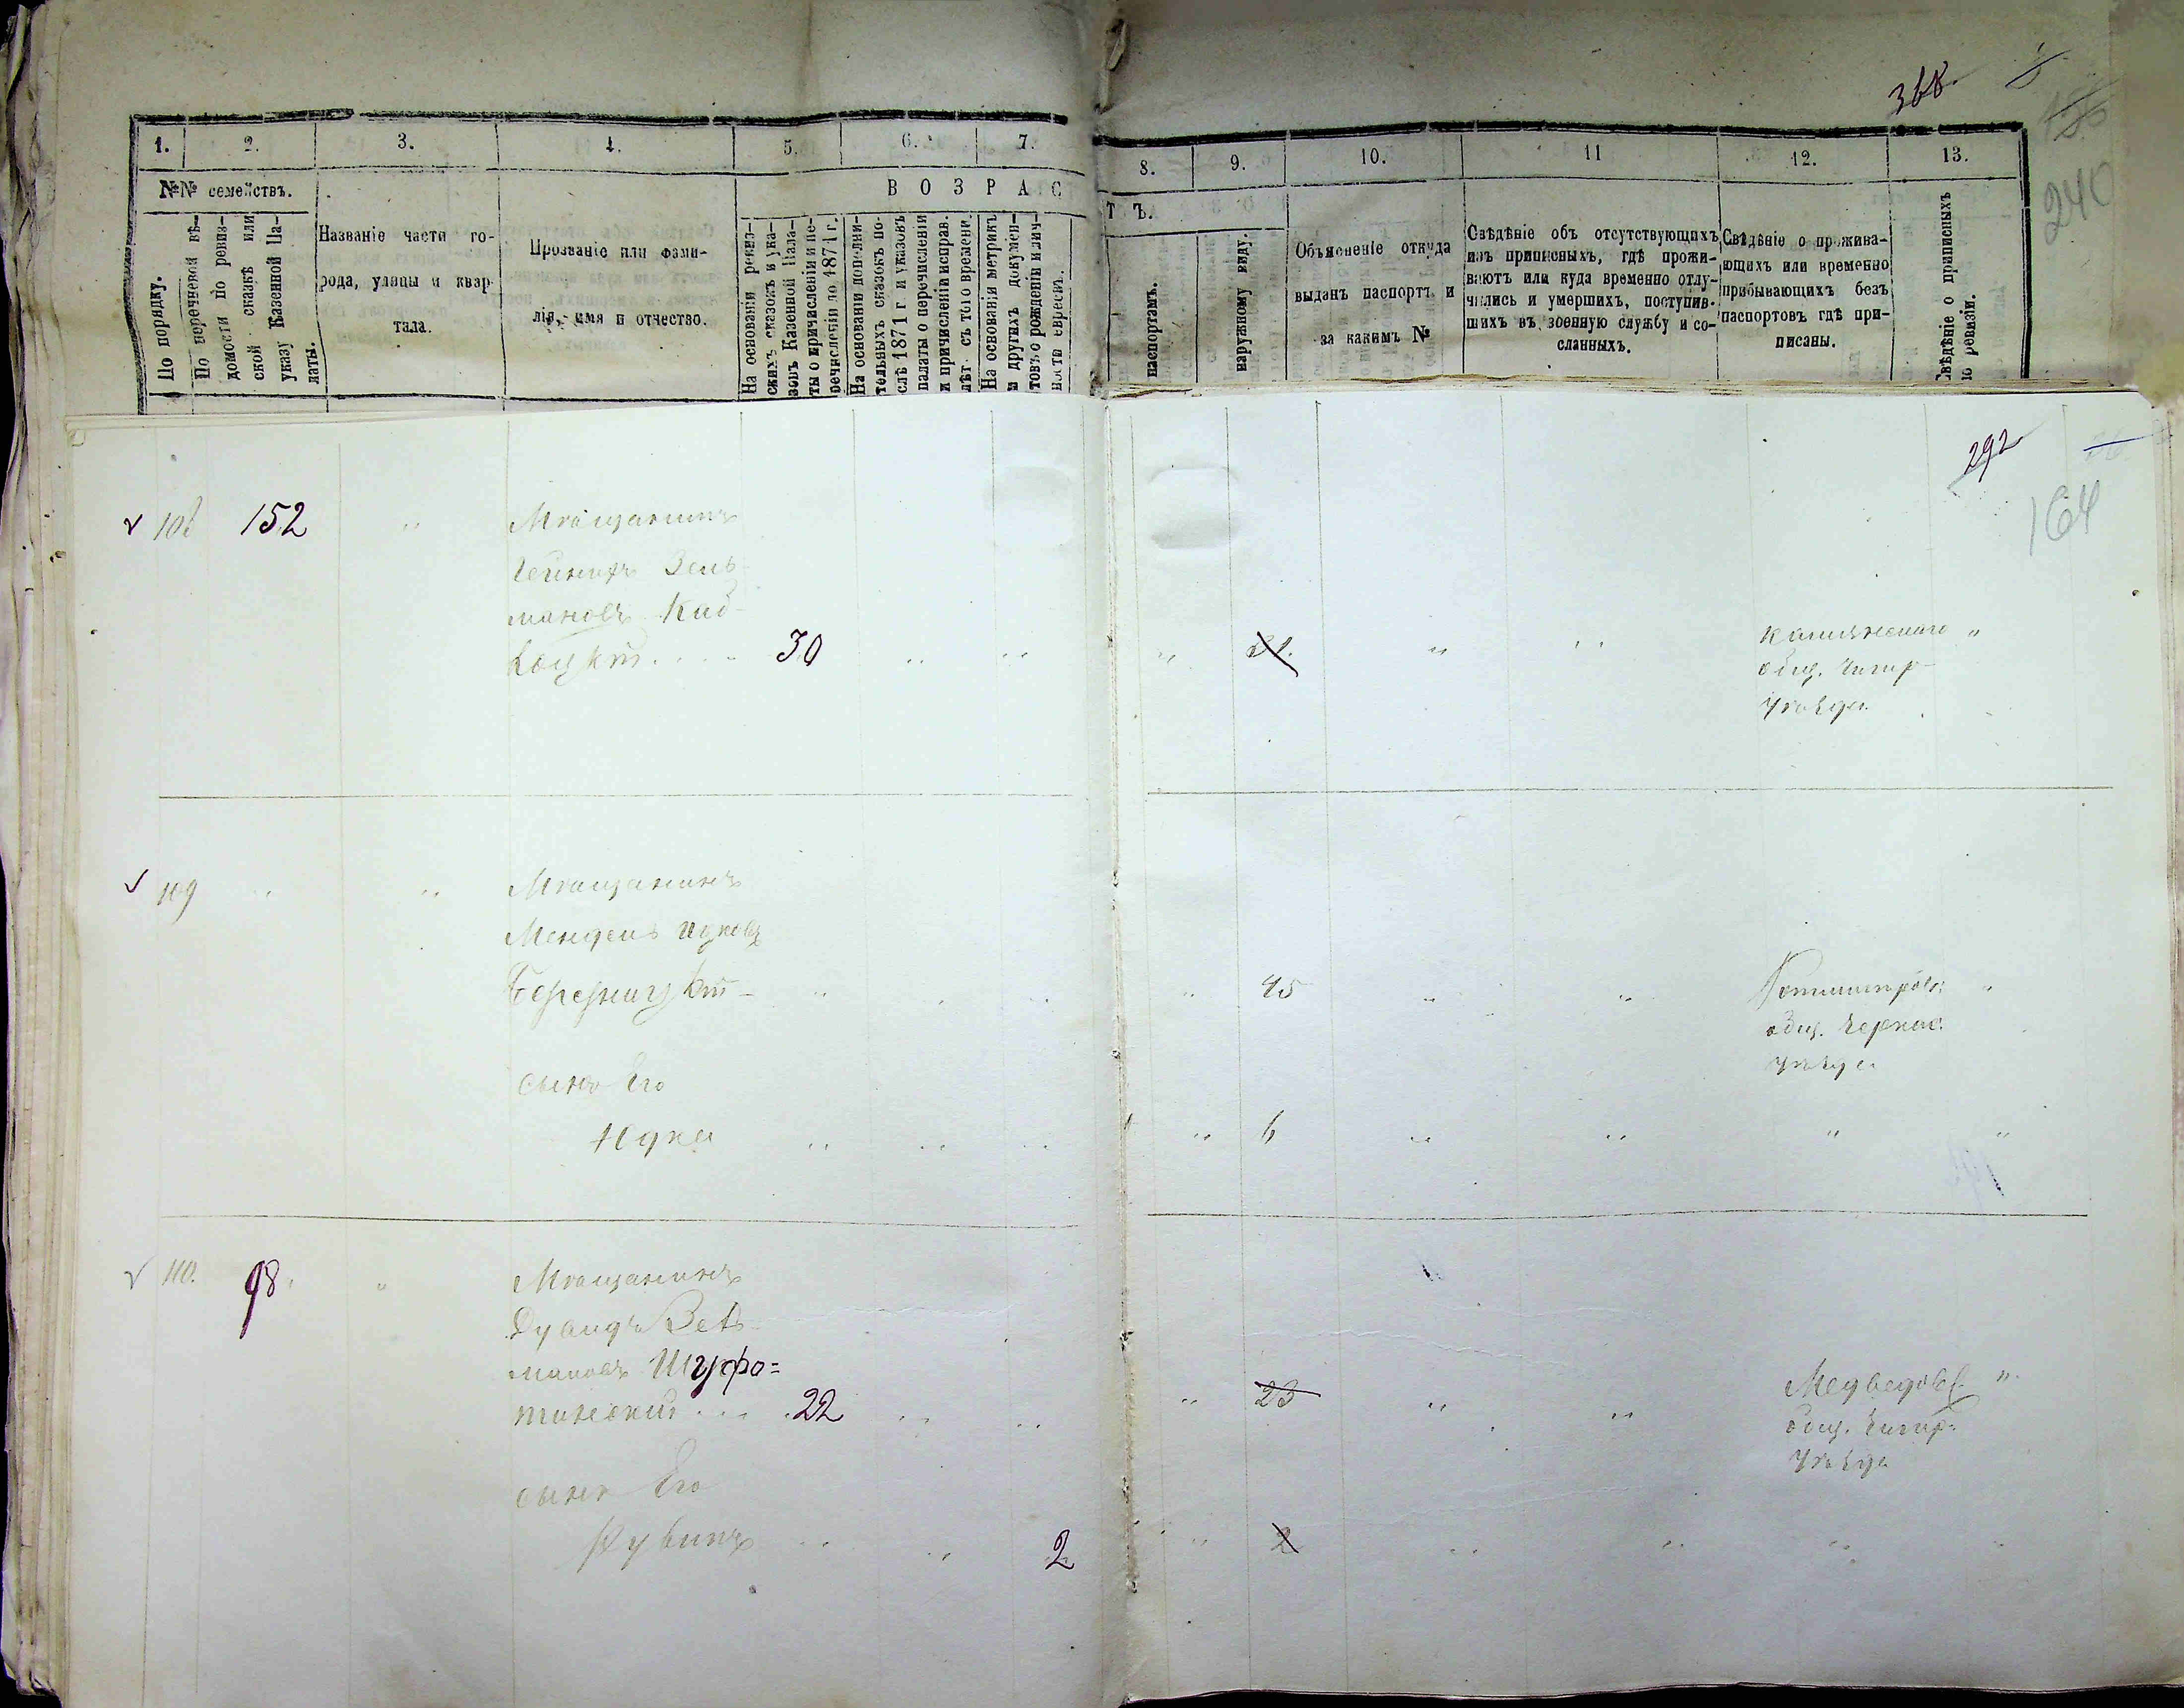 368
240
1. 2. 3. 4. 5. 6. 7. 8. 9. 10. 11 12. 13.
№№ семействъ.
По порядку.
По перечневой вѣ-
домости по ревиз-
ской сказкѣ или
указу Казенной Па-
латы.
Названіе части го-
рода, улицы и квар-
тала.
Прозваніе или фами-
лія, имя и отчество.
ВОЗРАС
ТЪ.
На основаніи ревиз-
скихъ сказокъ и ука-
зовъ Казенной Пала-
ты о причисленіи и пе-
речисленіи до 1871 г.
На основаніи дополни-
тельныхъ сказокъ по-
слѣ 1871 г. и указовъ
палаты о перечисленіи
и причисленіи исправ.
лѣт. съ того времени.
На основаніи метрикъ
и другихъ докумен-
товъ о рожденіи и лич-
ности евреевъ.
паспортамъ.
наружному виду.
Объясненіе откуда
выданъ паспортъ и
за какимъ №
Свѣдѣніе объ отсутствующихъ
изъ приписныхъ, гдѣ прожи-
ваютъ или куда временно отлу-
чились и умершихъ, поступив-
шихъ въ военную службу и со-
сланныхъ.
Свѣдѣніе о прожива-
ющихъ или временно
прибывающихъ безъ
паспортовъ гдѣ при-
писаны.
Свѣдѣніе о приписныхъ
по ревизіи.
292
164
108 152 " Мѣщанинъ
Зель-
мановъ
30 " " " " " "
общ. Чигир-
уѣзда
109 " " Мѣщанинъ
Мендель
" " " " 45 " " "
общ. Черкас.
уѣзда
сынъ Его
Юдка " " " " 6 " " " "
110. 98. " Мѣщанинъ
мановъ
22 " " " 23 " " Медведовс. "
общ. Чигир-
уѣзда
сынъ Его
Рувинъ " " 2 " 2 " " " "